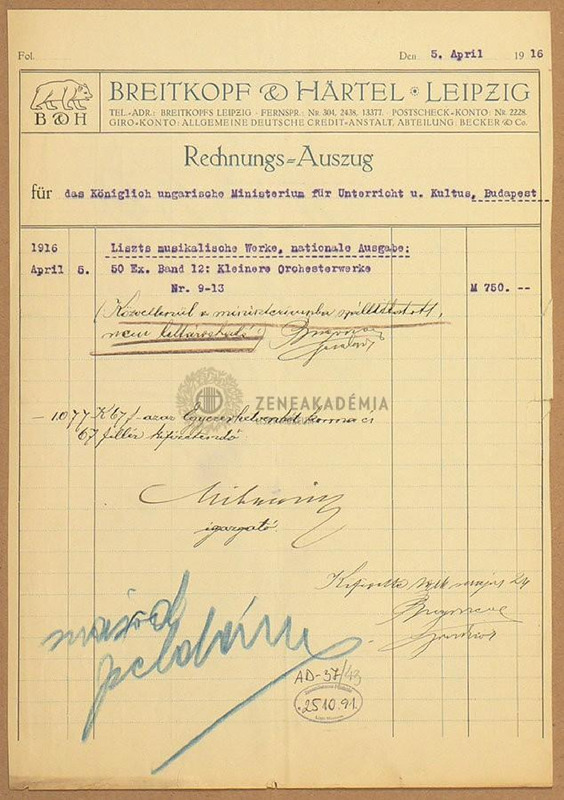 Fol.
Den 5. April 1916
BREITKOPF & HÄRTEL • LEIPZIG
B & H
TEL.-ADR.: BREITKOPFS LEIPZIG · FERNSPR.: NR. 304, 2438, 13377. · POSTSCHECK-KONTO: NR. 2228.
GIRO-KONTO: ALLGEMEINE DEUTSCHE CREDIT-ANSTALT, ABTEILUNG: BECKER & Co.
Rechnungs=Auszug
für das Königlich ungarische Ministerium für Unterricht u. Kultus, Budapest
1916 Liszts musikalische Werke, nationale Ausgabe:
April 5. 50 Ex. Band 12: Kleinere Orchesterwerke
Nr. 9-13 M 750. --
(Közvetlenül a miniszteriumba szállíttatott,
nem leltároztatik)
ZENEAKADÉMIA
1077 K 67 f. azaz Egyezerhetvenhét korona és
67 fillér kifizetendő
Mihalovich
igazgató.
Kifizette 1916 május 24
másod
példány
AD-37/43
25.10.91.